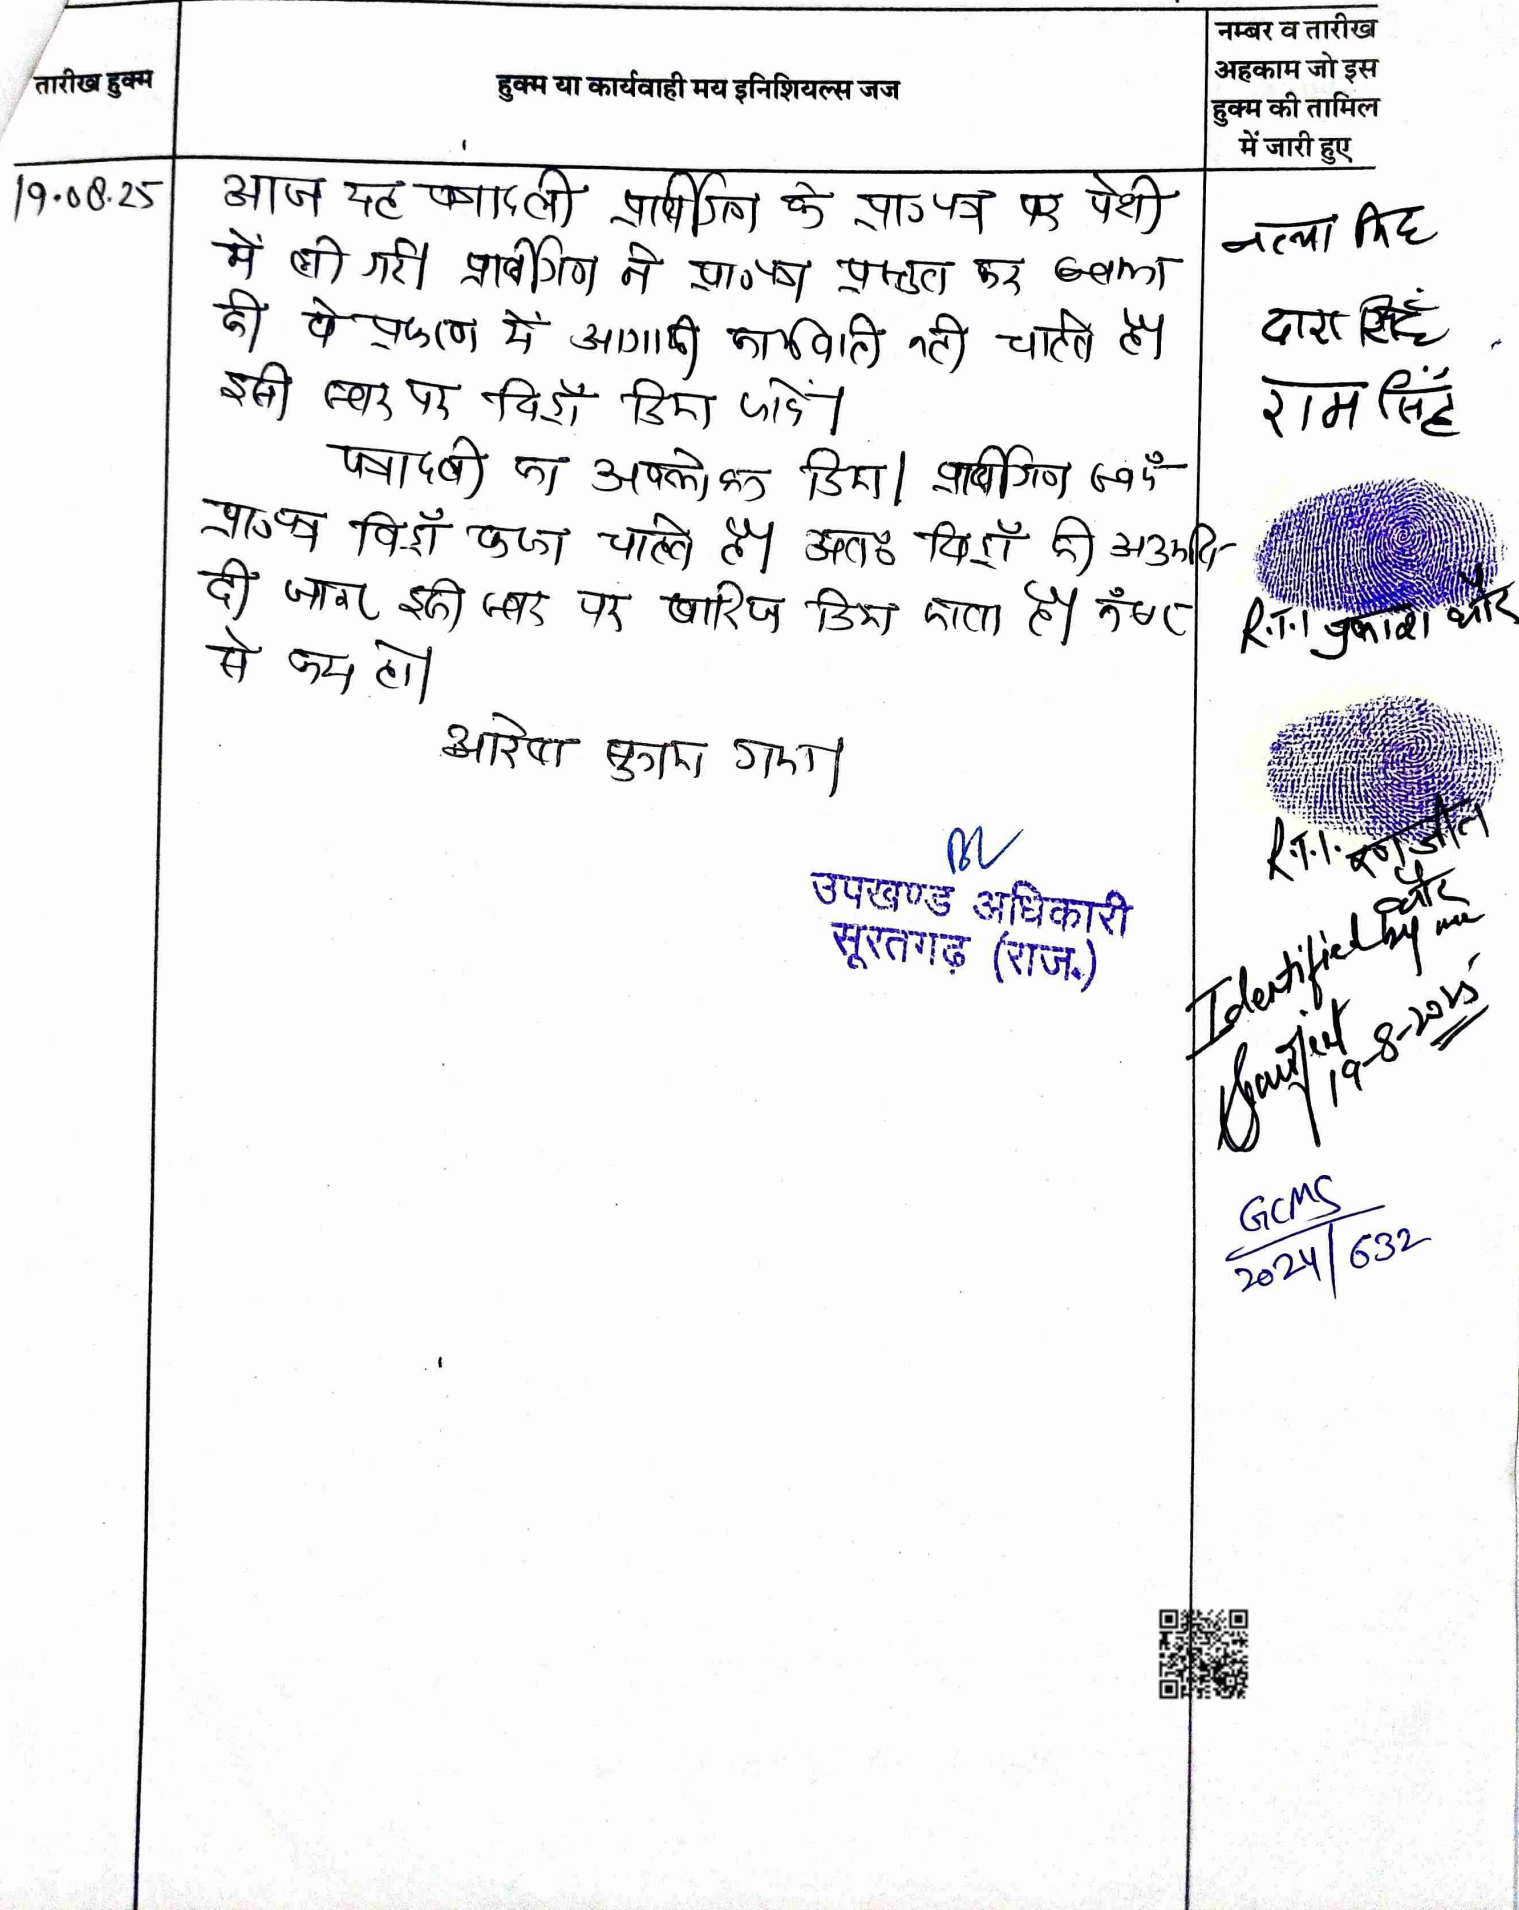 तारीख हुक्म
हुक्म या कार्यवाही मय इनिशियल्स जज
नम्बर व तारीख
अहकाम जो इस
हुक्म की तामिल
में जारी हुए
19.08.25
आज यह पत्रावली प्रार्थीगण के प्रा०पत्र पर पेशी
में ली गयी। प्रार्थीगण ने प्रा०पत्र प्रस्तुत कर
की वे प्रकरण में आगामी कार्यवाही नही चाहते है।
इसी स्तर पर विड्रॉ किया जावें।
पत्रावली का अवलोकन किया। प्रार्थीगण स्वयँ
प्रा०पत्र विड्रॉ करना चाहते है। अतः विड्रॉ की अनुमति
दी जाकर इसी स्तर पर खारिज किया जाता है। नँम्बर
से कम हो।
आदेश सुनाया गया।
उपखण्ड अधिकारी
सूरतगढ़ (राज.)
नत्था सिंह
दारा सिंह
राम सिंह
R.T.I प्रकाश कौर
R.T.I. रणजीत
कौर
Identified by me
19-8-2025
GCMS
2024/632